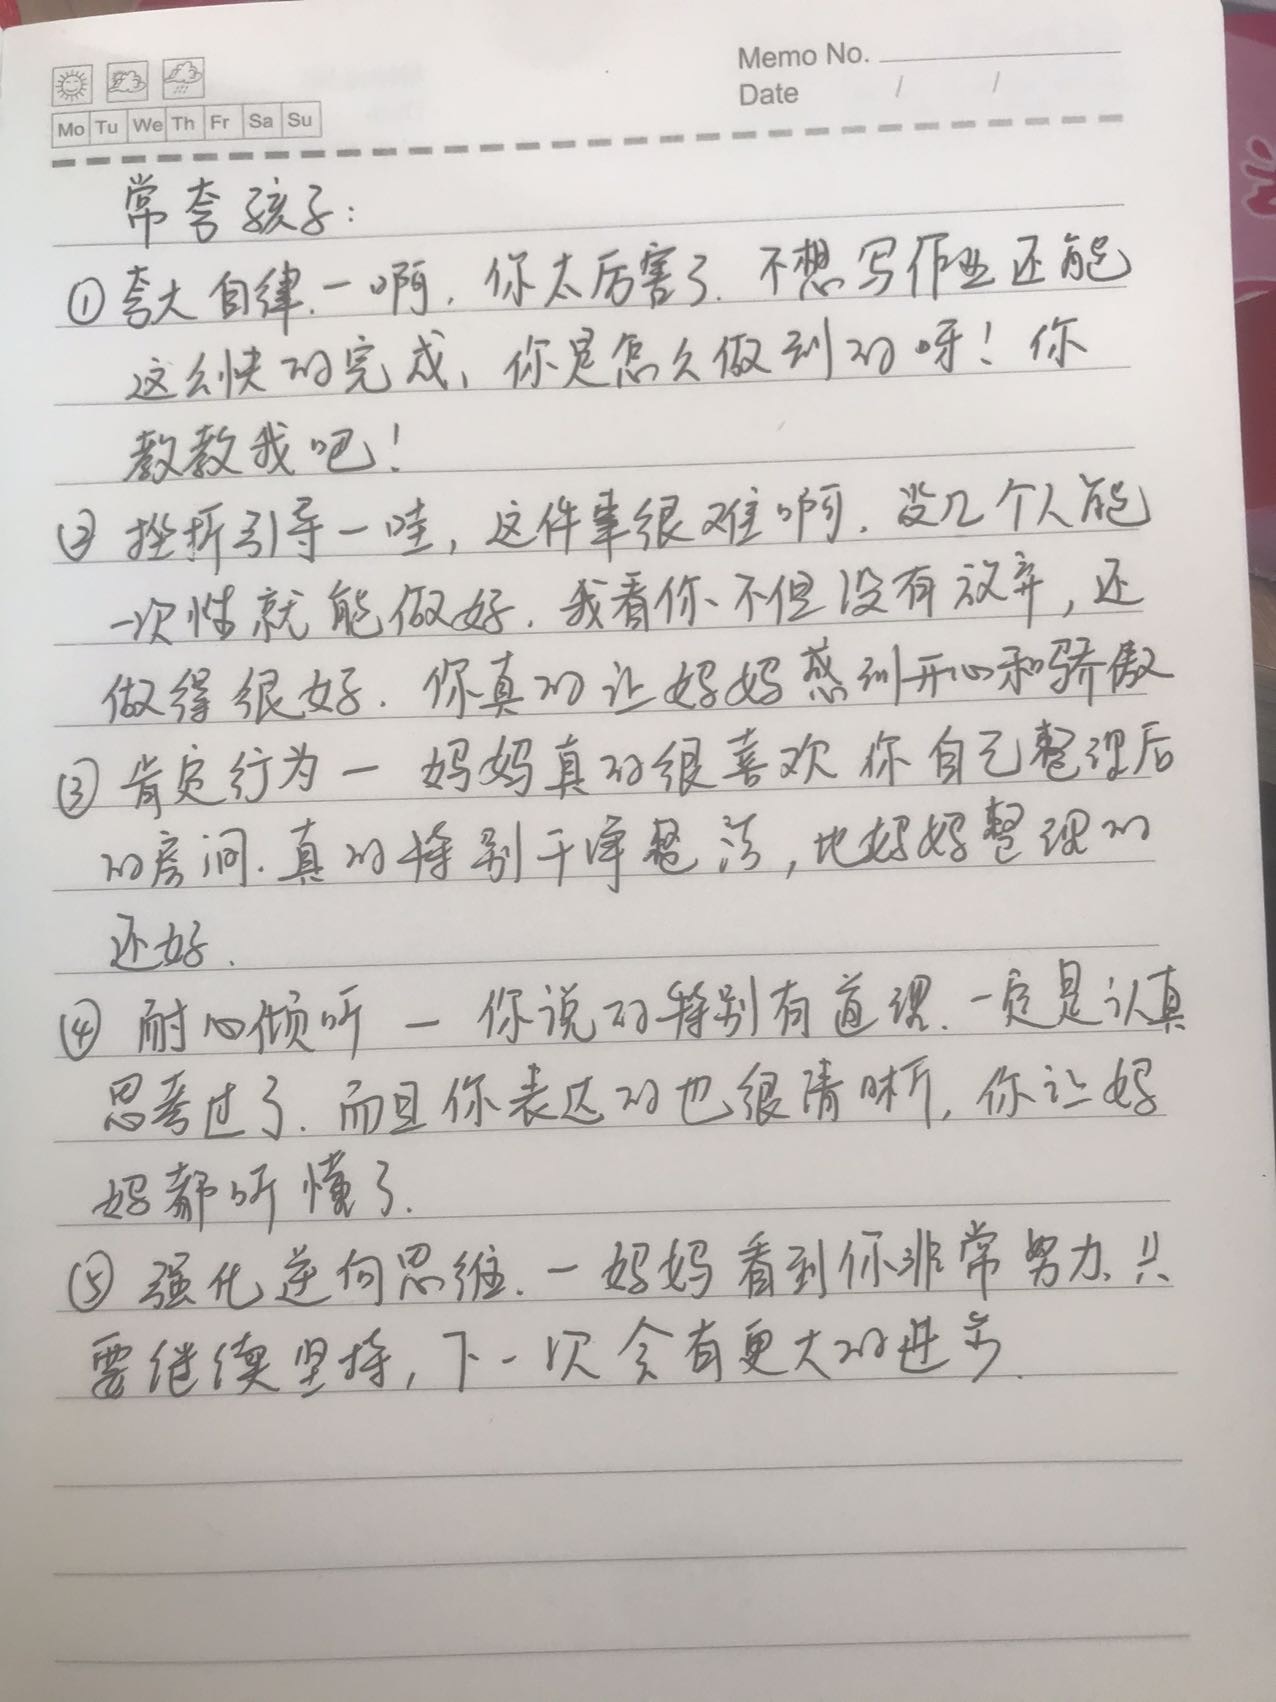 Memo No.
Date / /
Mo Tu We Th Fr Sa Su
常夸孩子:
①夸大自律.一啊,你太厉害了.不想写作业还能
这么快的完成、你是怎么做到的呀!你
教教我吧!
②挫折引导一哇,这件事很难啊.没几个人能
一次性就能做好.我看你、不但没有放弃,还
做得很好.你真的让妈妈感到开心和骄傲
③肯定行为一妈妈真的很喜欢你自己整理后
的房间.真的特别干净整洁,比妈妈整理的
还好.
④耐心倾听一你说的特别有道理.一定是认真
思考过了.而且你表达的也很清晰,你让妈
妈都听懂了.
⑤强化逆向思维.一妈妈看到你非常努力、只
要继续坚持,下一次会有更大的进步.